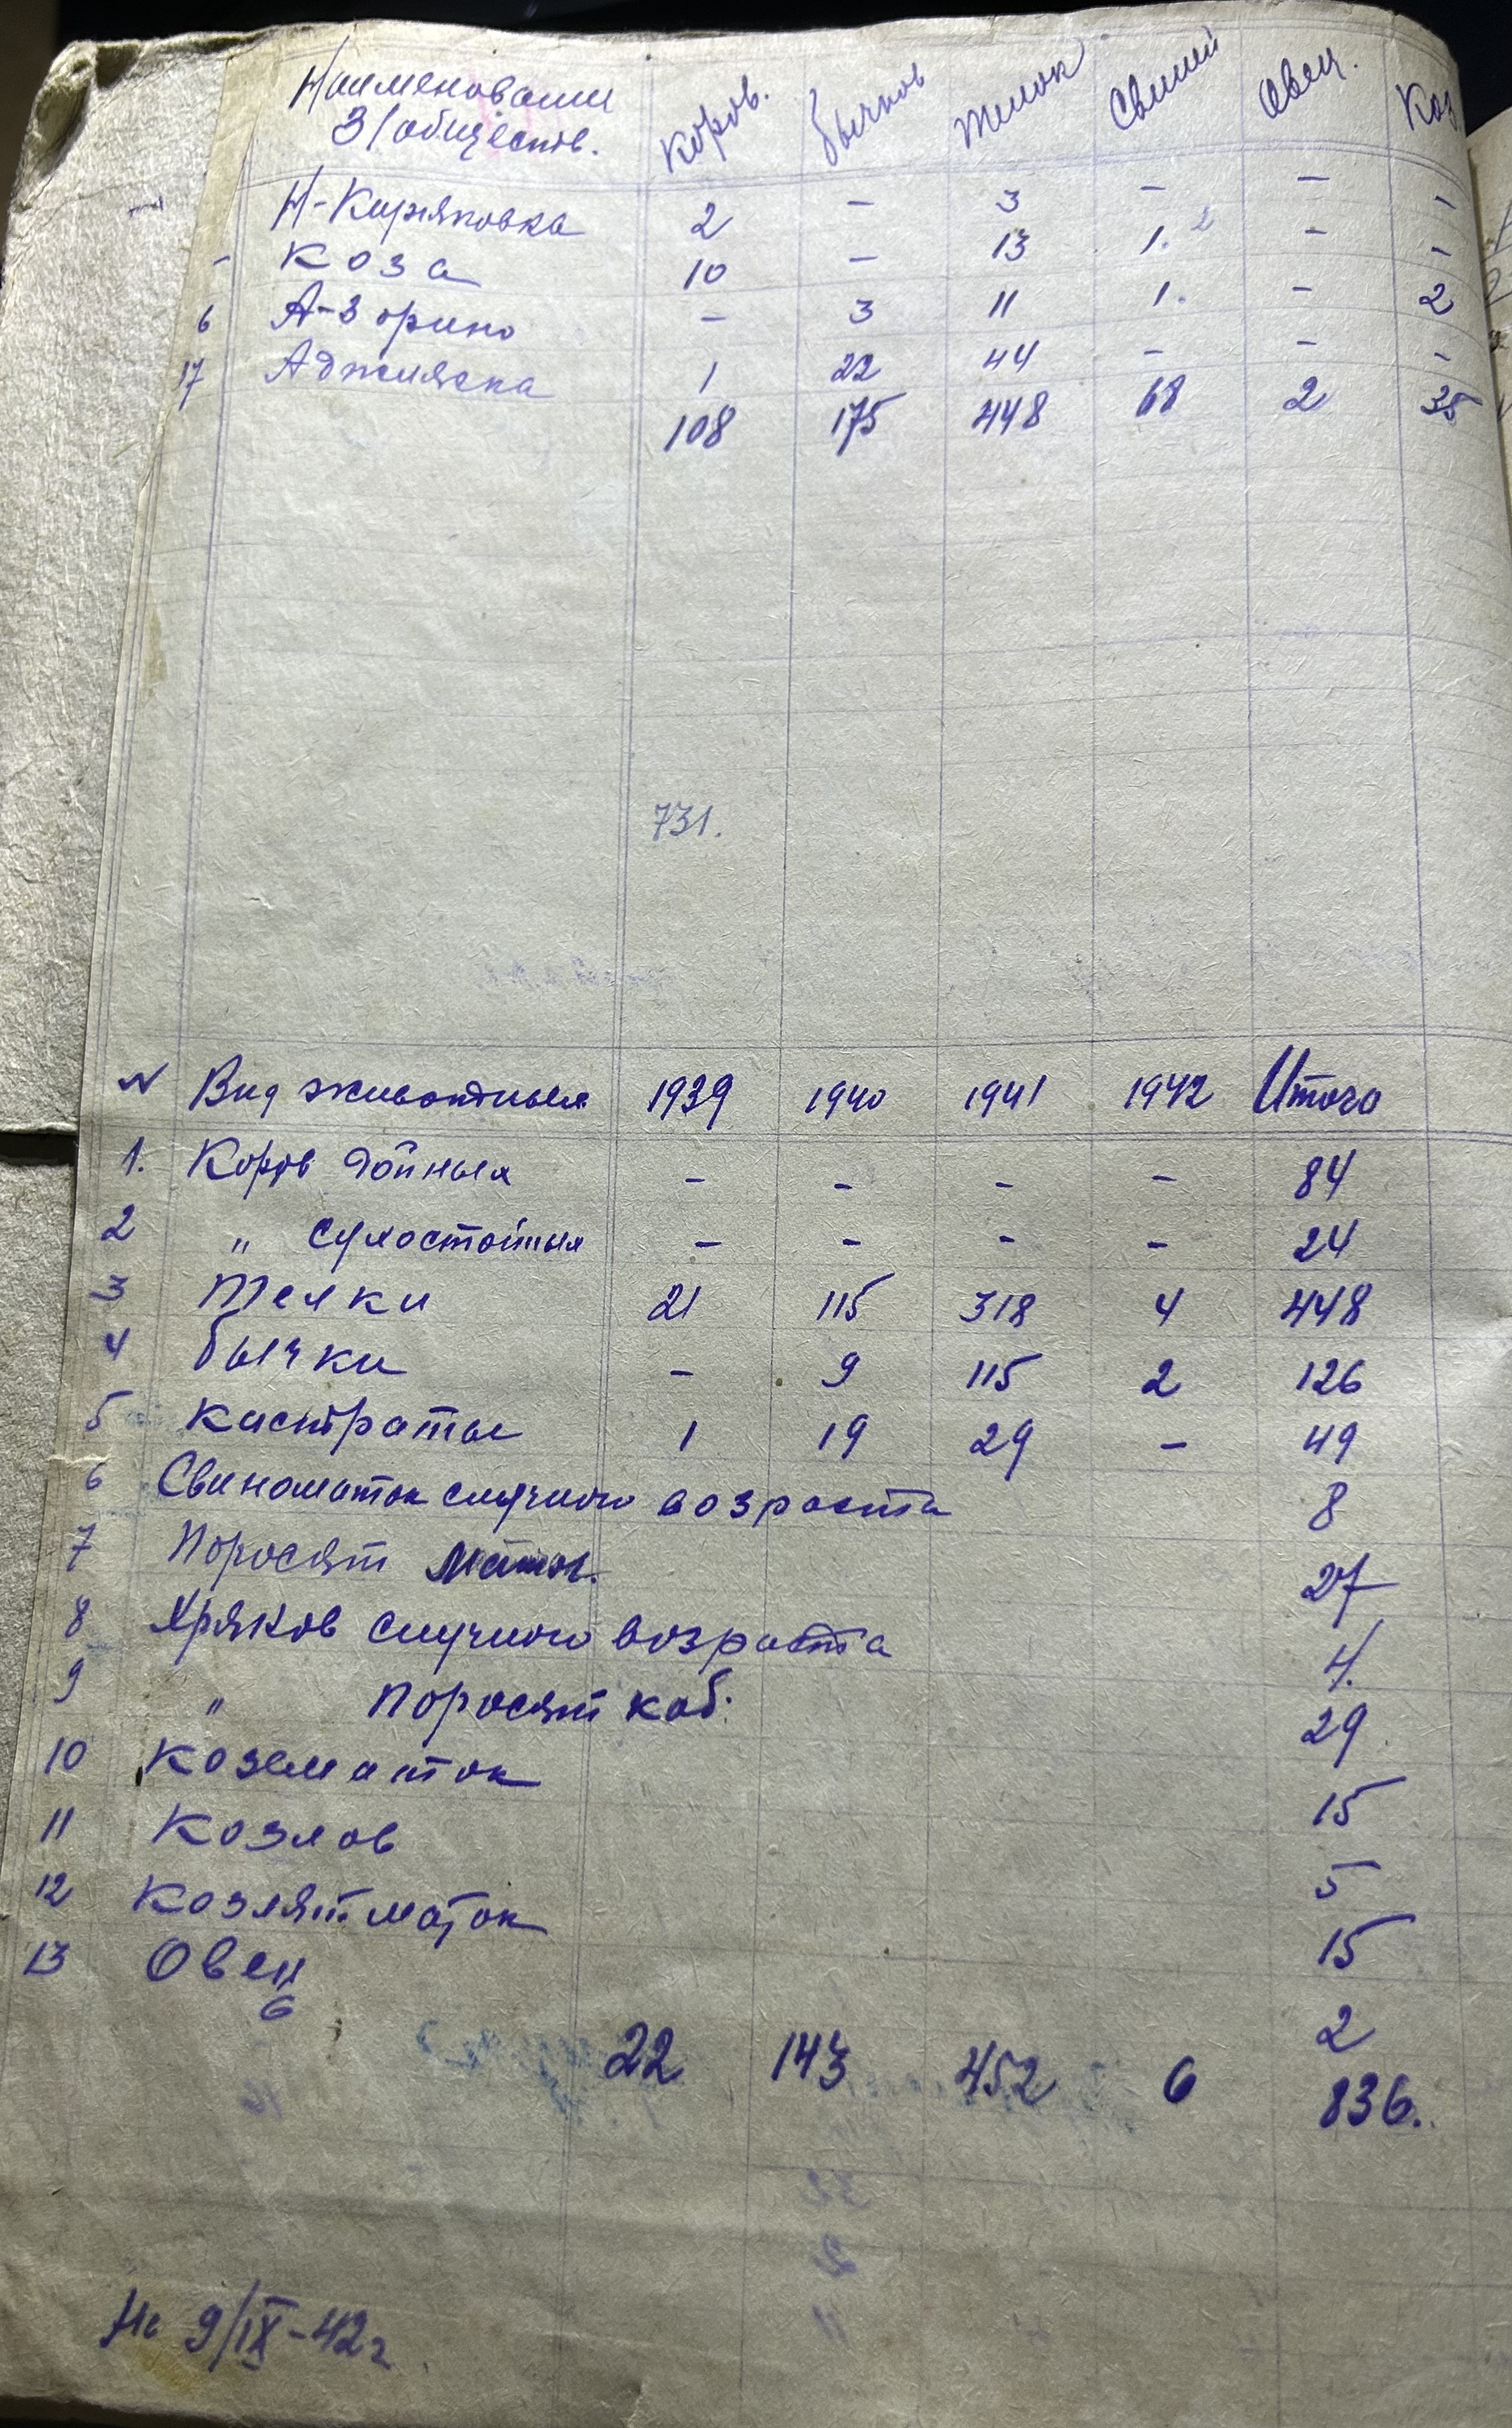 Наименование Коров. бычков телок Свиней Овец. Коз
З/обществ.
Н-Киряковка 2 – 3 – – –
– Коза 10 – 13 1. 2 – –
6 А-Зорино – 3 11 1. – 2
17 Аджияска 1 22 44 – – –
108 175 448 68 2 35
731.
N Вид животных 1939 1940 1941 1942 Итого
1. Коров дойных – – – – 84
2 " сухостойных – – – – 24
3 Телки 21 115 318 4 448
4 бычки – 9 115 2 126
5 кастраты 1 19 29 – 49
6 Свиноматок случного возраста 8
7 Поросят маток. 27
8 Хряков случного возраста 4.
9 " поросят каб. 29
10 Козематок 15
11 Козлов 5
12 Козлят маток 15
13 Овец 2
6
22 143 452 6 836.
На 9/IX-42 г.